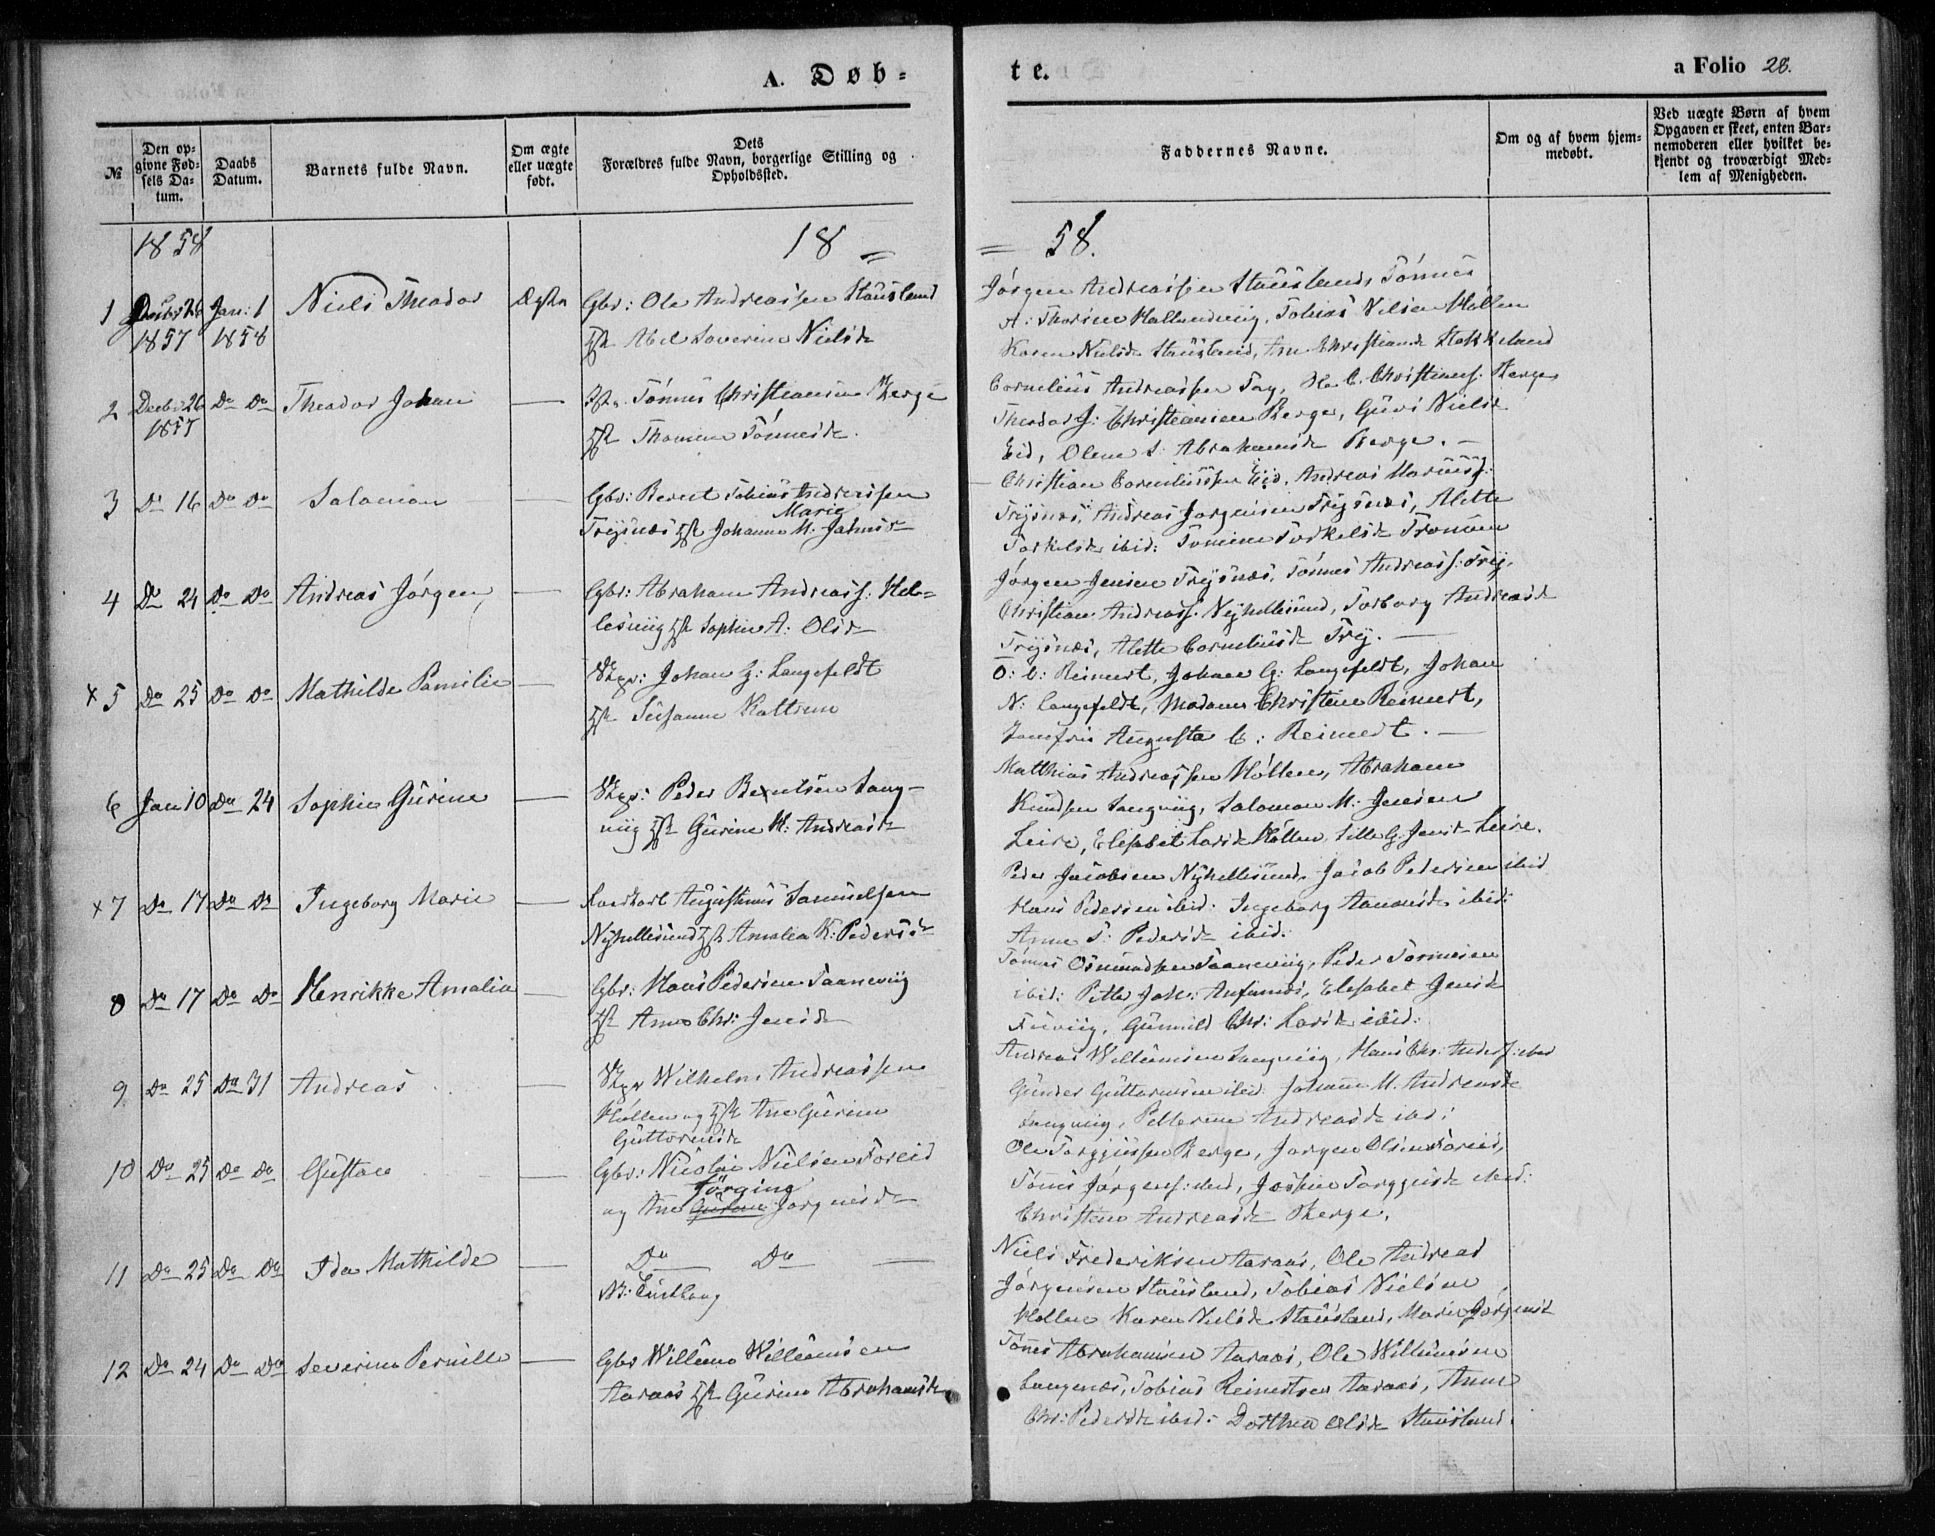 A. Døb-
te.
a Folio 28.
№
Den op-
givne Fød-
sels Da-
tum.
Daabs
Datum.
Barnets fulde Navn.
Om ægte
eller uægte
født.
Dets
Forældres fulde Navn, borgerlige Stilling og
Opholdssted.
Faddernes Navne.
Om og af hvem hjem-
medøbt.
Ved uægte Børn af hvem
Opgaven er skeet, enten Bar-
nemoderen eller hvilket be-
kjendt og troværdigt Med-
lem af Menigheden.
1858
18 =
= 58.
1 Decbr 26 Jan: 1 Niels Theodor Ægte Gbr: Ole Andreassen Stausland
1857 1858
Abel Severine Nielsd
Jørgen Andreassen Stausland, Tønnes
A: Thorsen Hallandsvig, Tobias Nilsen Høllen
Karen Nielsd Stausland, Ane Christiansd Stokkeland
2 Decbr 26 Do Do Theodor Johan — Tønnes Christiansen Berge
1857
Thomine Tønnesd.
Cornelius Andreassen Tag, C. Christians. Berge
Theodor J: Christiansen Berge, Guri Nielsd
Eid, Olene S. Abrahamsd Berge. —
3 Do 16 Do Do Salomon — Gbr: Berent Tobias Andreassen
Marie
Trysnæs Johanne M. Jahnsd
Christian Corneliussen Eid, Andreas Mariuss:
Trysnæs, Andreas Jørgensen Trysnæs, Alette
Torkelsd ibid: Tomine Torkelsd Tronven
4 Do 24 Do Do Andreas Jørgen — Gbr: Abraham Andreass: Hel-
lesviig Sophie A: Olsd
Jørgen Jensen Trysnæs, Tønnes Andreass: Try,
Christian Andreass. Nyhellesund, Torborg Andreasd
Trysnæs, Alette Corneliusd Try. —
x 5 Do 25 Do Do Mathilde Pamilie — Johan G: Langefeldt
Susanne Kattrine
O: C: Reinert, Johan G: Langefeldt, Johan
N: Langefeldt, Madame Christine Reinert,
Jomfru Augusta C: Reinert. —
6 Jan 10 Do 24 Sophie Gurine — Peder Berntsen Lang-
viig Gurine K: Andreasd
Matthias Andreassen Høllen, Abraham
Knudsen Langviig, Salomon M: Jensen
Leire, Elisabet Larsd Høllen, Sille G: Jensd Leire.
x 7 Do 17 Do Do Ingeborg Marie — Augustinus Samuelsen
Nyhellesund Amalia K: Pedersd
Peder Jacobsen Nyhellesund, Jacob Pedersen ibid
Hans Pedersen ibid: Ingeborg Aanonsd ibid:
Anne T: Pedersd ibid:
8 Do 17 Do Do Henrikke Amalia — Gbr: Hans Pedersen Taaneviig
Anne Chr: Jensd
Tønnes Osmundsen Taaneviig, Peder Tønnesen
ibid: Peder Joh: Aufinnæs, Elisabet Jensd
Gunnild Chr: Larsd ibid:
9 Do 25 Do 31 Andreas — Wilhelm Andreassen
Høllen og Ane Gurine
Guttormsd
Andreas Willumsen Langviig, Hans Chr: Anders: ibid
Gunder Guttormsen ibid. Johanne M. Andreasd
Langviig, Petterine Andreasd ibd:
10 Do 25 Do Do Gustav — Gbr: Nicolai Nielsen Foreid
Jørgine
og Ane Gurine Jørgensd
Ole Torgjussen Berge, Jørgen Olsen Foreid,
Tønnes Jørgens: ibid, Josefine Torgjusd ibid:
Christine Andreasd Berge.
11 Do 25 Do Do Ida Mathilde — Do — Do —
NB: Tvilling
Niels Frederiksen Aaraas, Ole Andreas
Jørgensen Stausland, Tobias Nielsen
Høllen Karen Nielsd Stausland, Marie Jørgensd
12 Do 24 Do Do Severine Pernille — Gbr Willum Willumsen
Aaraas Gurine Abrahamsd
Tønnes Abrahamsen Aaraas, Ole Willumsen
Langenæs, Tobias Reinertsen Aaraas, Anne
Chr: Pedersd ibid: Dorthea Olsd Stausland.